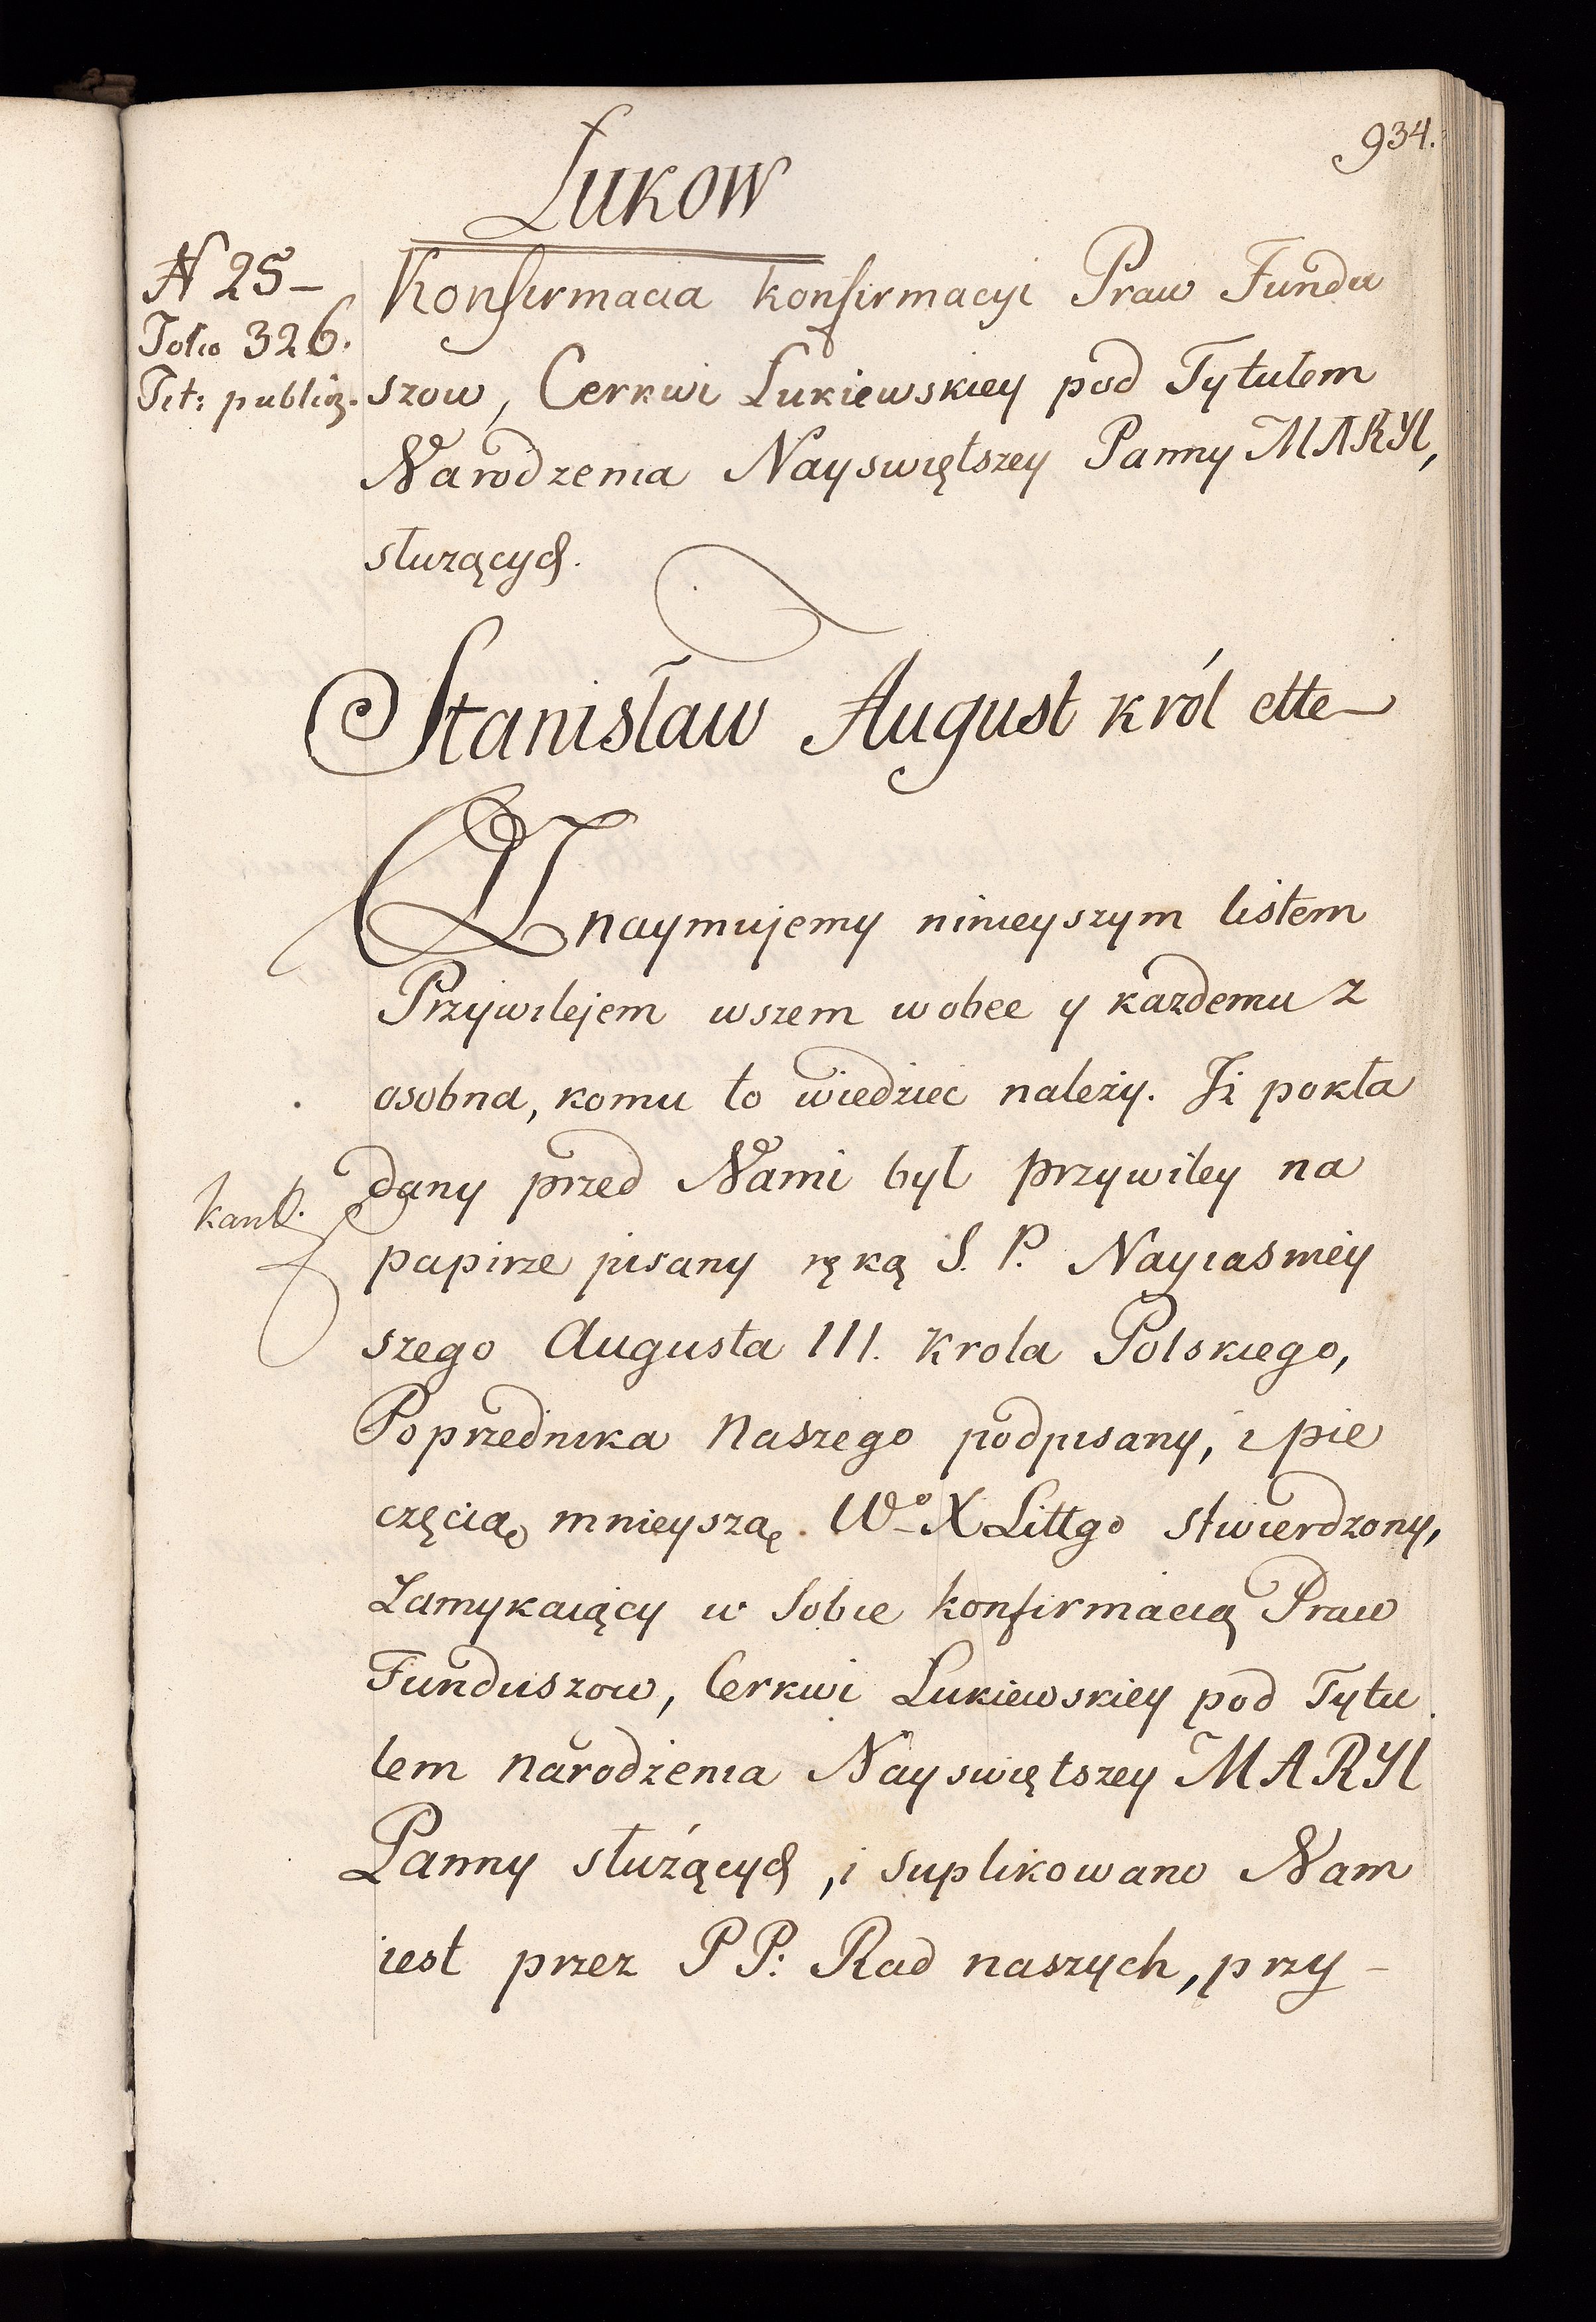 934.
Łukow
N 25 –
Folio 326.
Tit: publiq.
Konfirmacia konfirmacyi Praw Fundu
szow, Cerkwi Łukiewskiey pod Tytułem
Narodzenia Nayswiętszey Panny MARYI,
służących.
Stanisław August król ette
Oznaymujemy ninieyszym listem
Przywilejem wszem wobec y kazdemu z
osobna, komu to wiedziec należy. Iż pokła
dany przed Nami był przywiley na
papirze pisany ręką S. P. Nayiasniey
szego Augusta III. krola Polskiego,
Poprzednika Naszego podpisany, i pie
częcią mnieyszą. Wo X Littgo stwierdzony,
Zamykaiący w Sobie konfirmacią Praw
Funduszow, Cerkwi Łukiewskiey pod Tytu
łem narodzenia Nayswiętszey MARYI
Panny służących, i suplikowano Nam
iest przez PP: Rad naszych, przy –